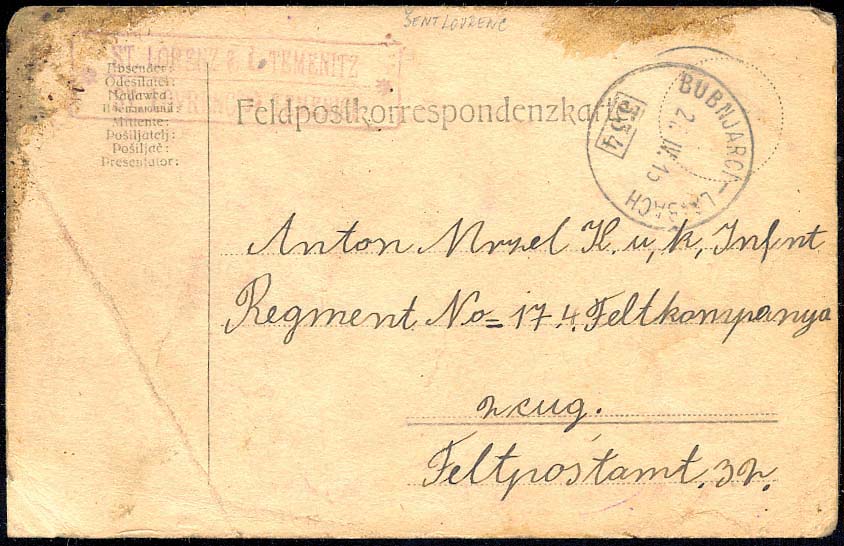 ŠENT LOVRENC
ST. LORENZ a. d. TEMENITZ
Absender:
Odesílatel:
Nadawka:
Mittente:
Pošiljatelj:
Pošiljač:
Presentator:
Feldpostkorrespondenzkarte
BUBNJARCI-LAIBACH
IV 15
Anton Mrzel K. u, k, Infnt
Regment No= 17. 4. Feltkompanya
2 cug.
Feltpostamt. 32.